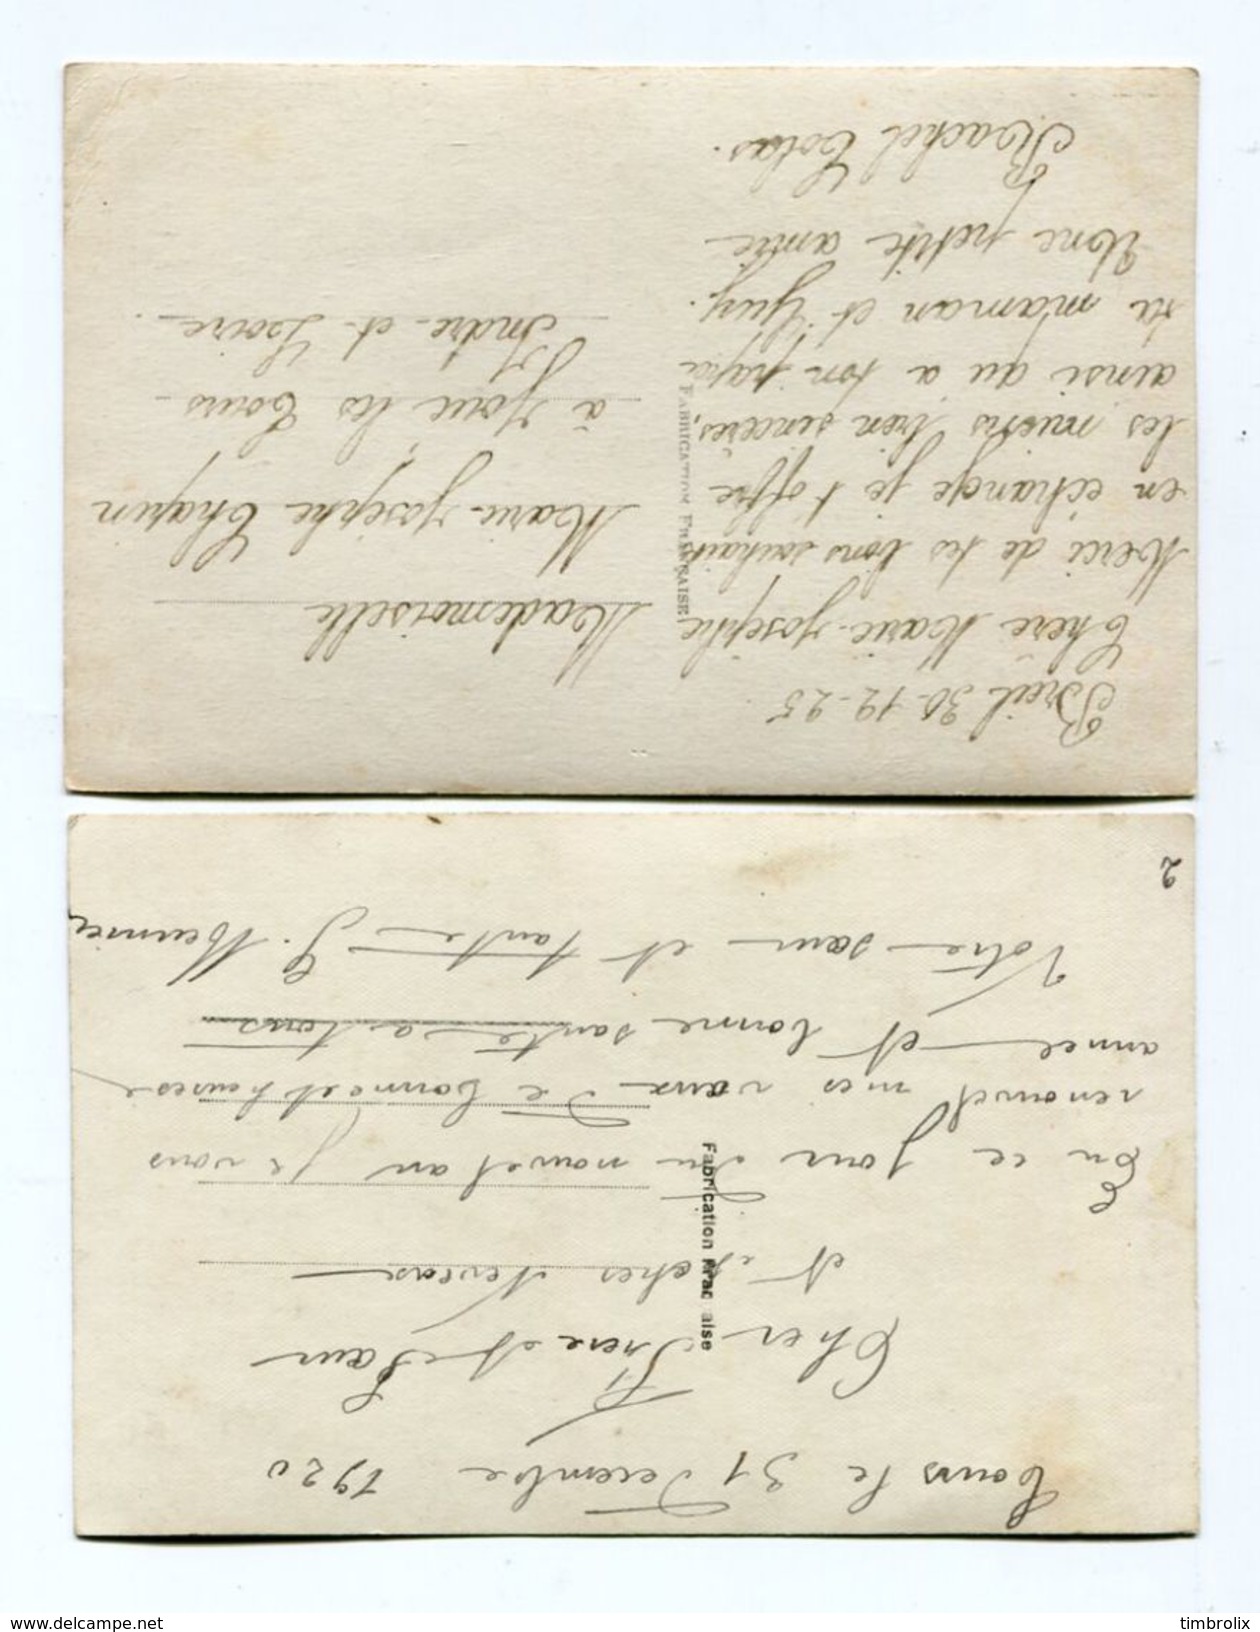 Breil 30-12-25
Chère Marie-Josèphe
Merci de tes bons souhaits
en échange je t'offre
les miens bien sincères,
ainsi qu'a ton papa
ta maman et Guy.
Une petite amie
Rachel Colas.
Mademoiselle
Marie-Josèphe Chapin
à Joué les Tours
Indre-et-Loire
FABRICATION FRANÇAISE
Tours le 31 Décembre 1920
Cher Frère et Sœur
et chers Neveux
En ce jour du nouvel an je vous
renouvel mes vœux de bonne et heureuse
année et bonne santé a tous
Votre sœur et tante G. Meunier
2
Fabrication Française
delcampe.net
timbrolix